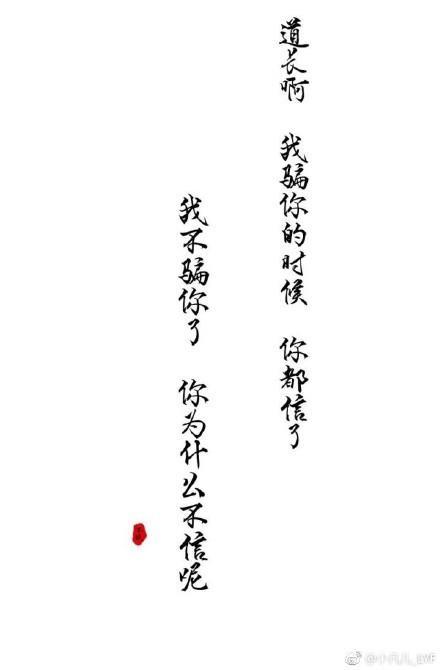 道长啊 我骗你的时候 你都信了
我不骗你了 你为什么不信呢